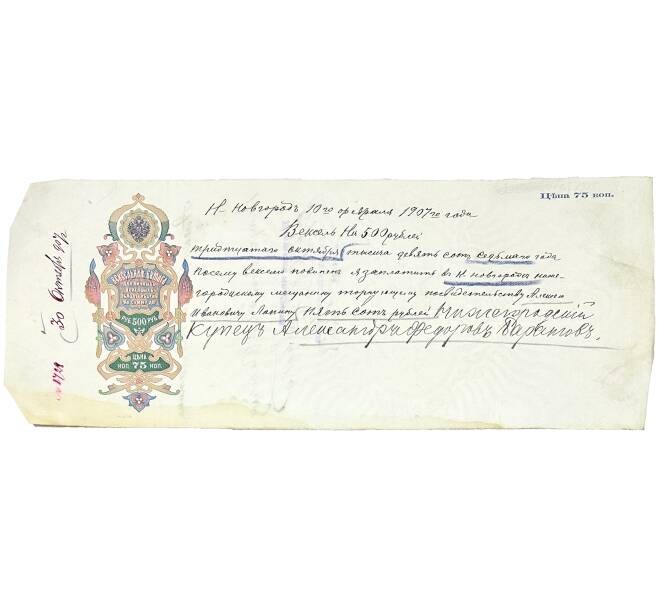 Цѣна 75 коп.
Н-Новгородъ 10го февраля 1907го года
Вексель На 500 рублей
тридцатого октября тысяча девять сотъ седьмаго года
Посему векселю повиненъ я заплатить въ Н. Новгороды ниже-
городскому мещанину торгующему по свидетельству Алексѣ
Ивановичу Лапину Пять сотъ рублей Нижегородскій
Купецъ Александръ Федоровъ
30 Октября 907г
1728
ВЕКСЕЛЬНАЯ БУМАГА
РУБ 500 РУБ
ЦѢНА
КОП. 75 КОП.